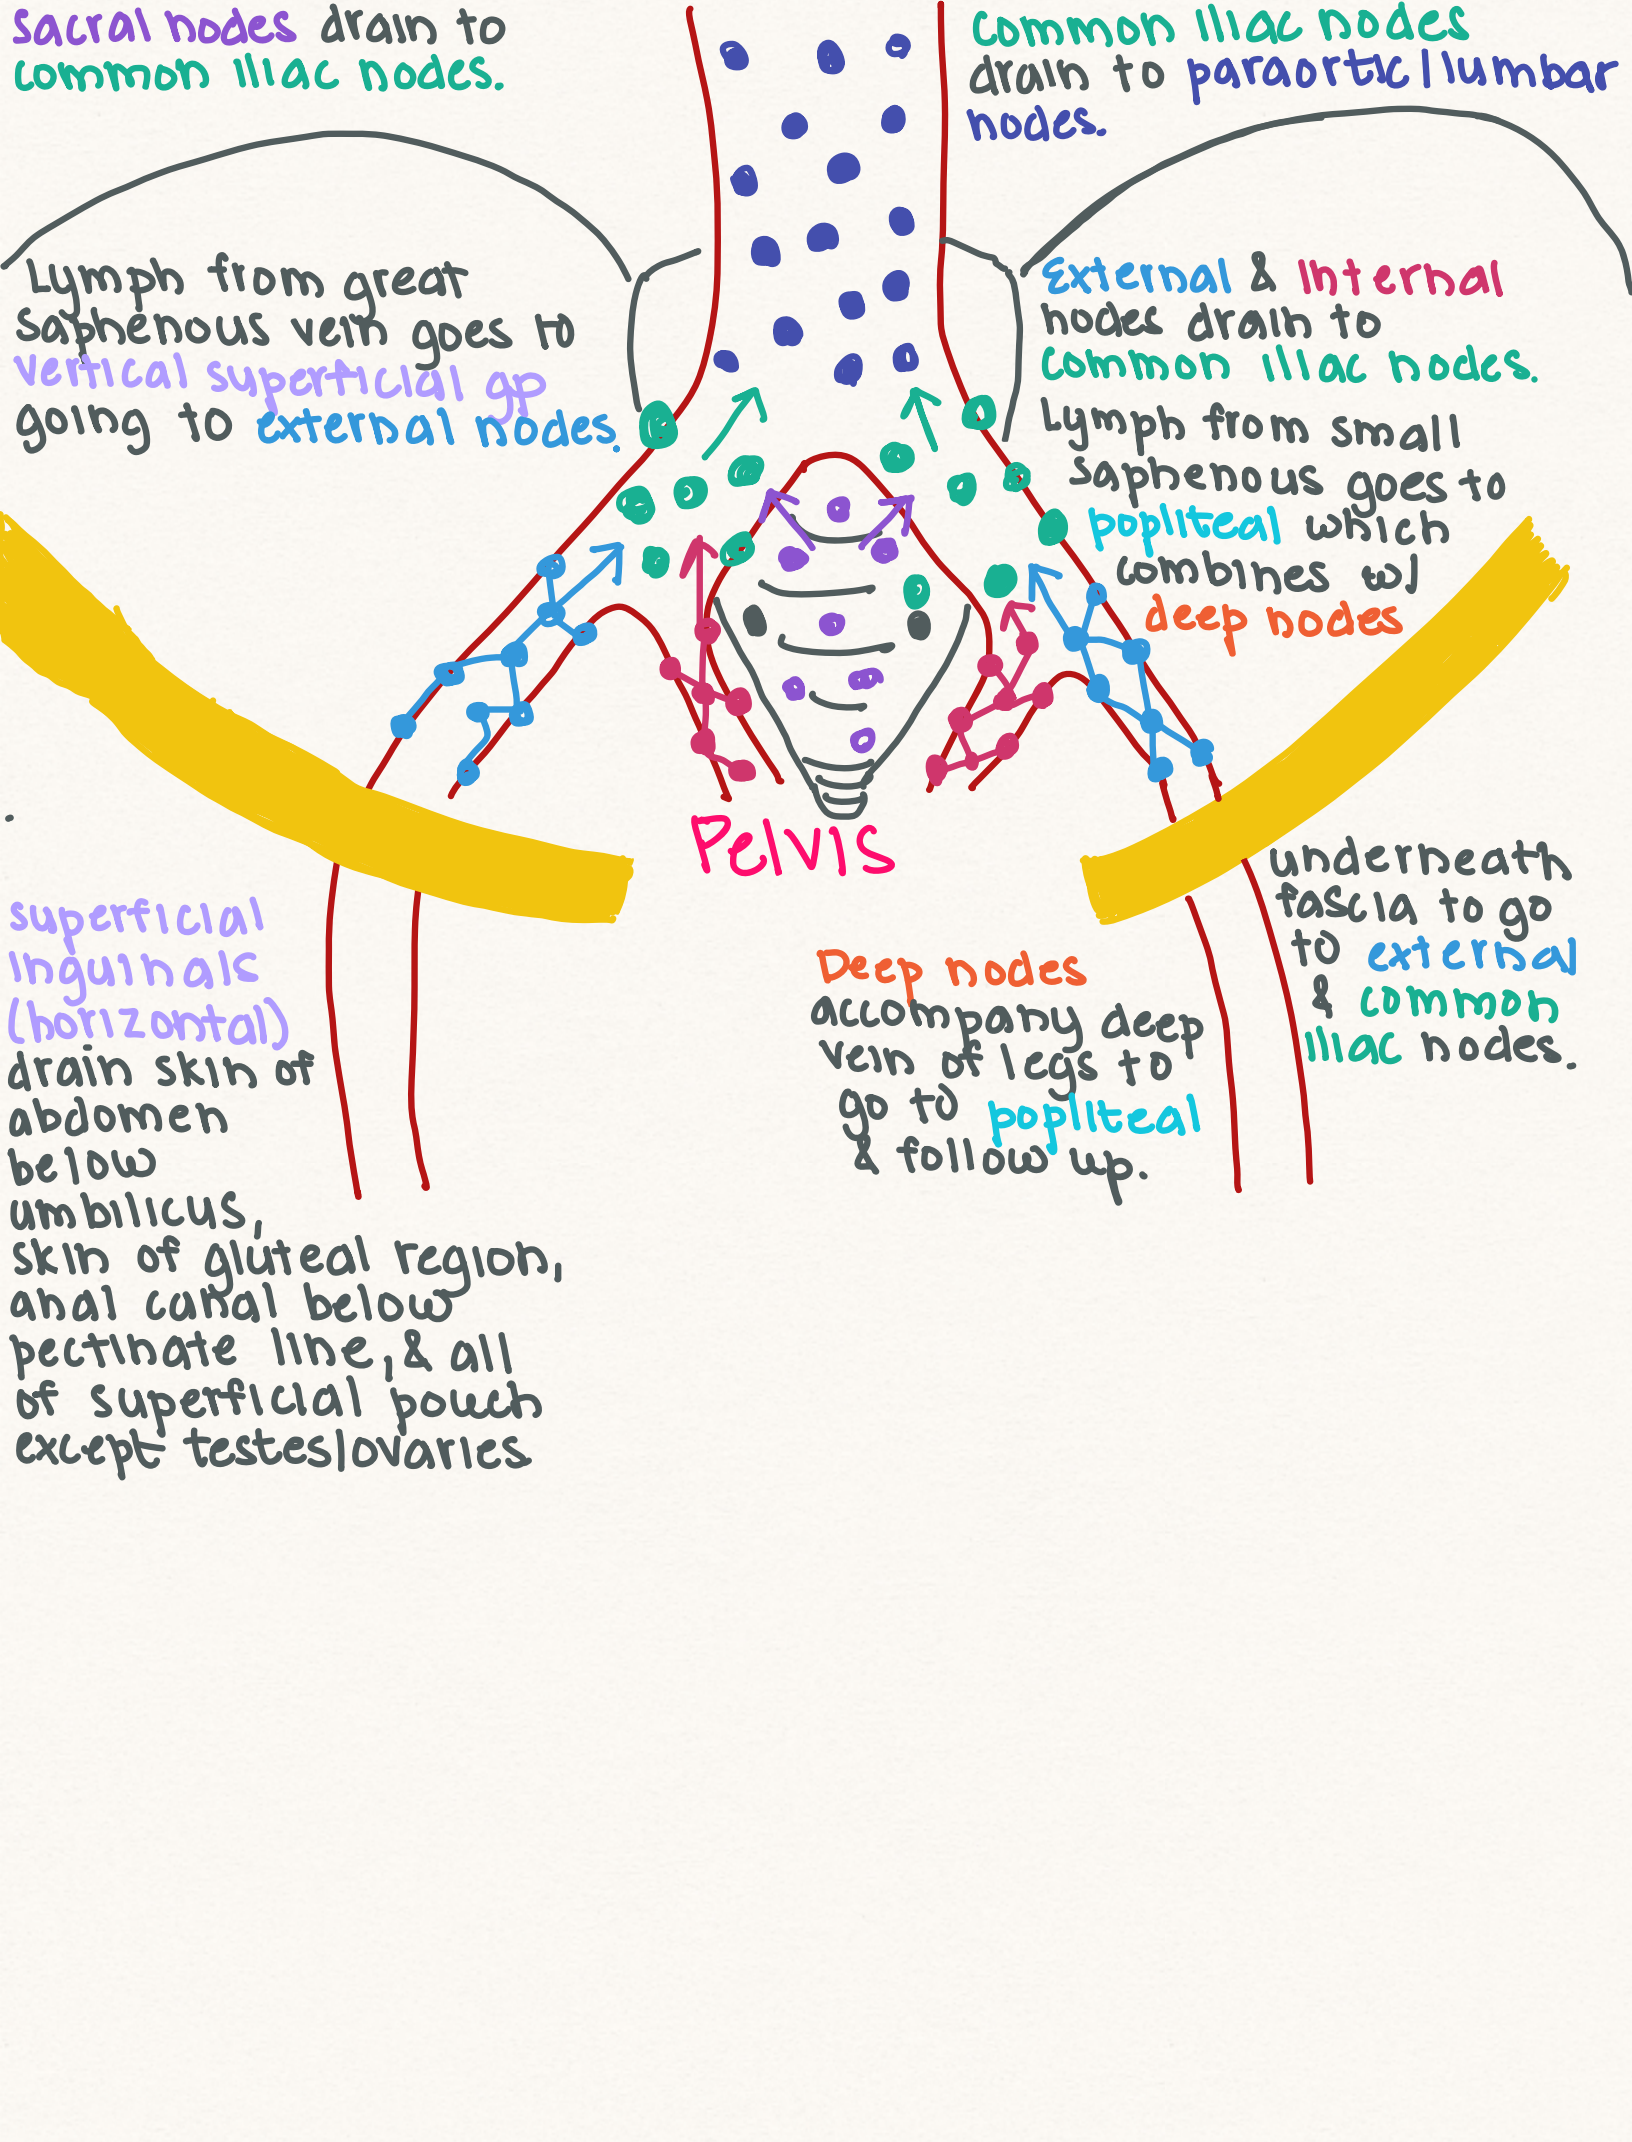 Sacral nodes drain to
common iliac nodes.
Common Iliac nodes
drain to paraortic/lumbar
nodes.
Lymph from great
saphenous vein goes to
vertical superficial gp
going to external nodes.
External & Internal
nodes drain to
common iliac nodes.
Lymph from small
saphenous goes to
popliteal which
combines w/
deep nodes
underneath
fascia to go
to external
& common
iliac nodes.
Pelvis
superficial
inguinals
(horizontal)
drain skin of
abdomen
below
umbilicus,
skin of gluteal region,
anal canal below
pectinate line, & all
of superficial pouch
except testes/ovaries
Deep nodes
accompany deep
vein of legs to
go to popliteal
& follow up.